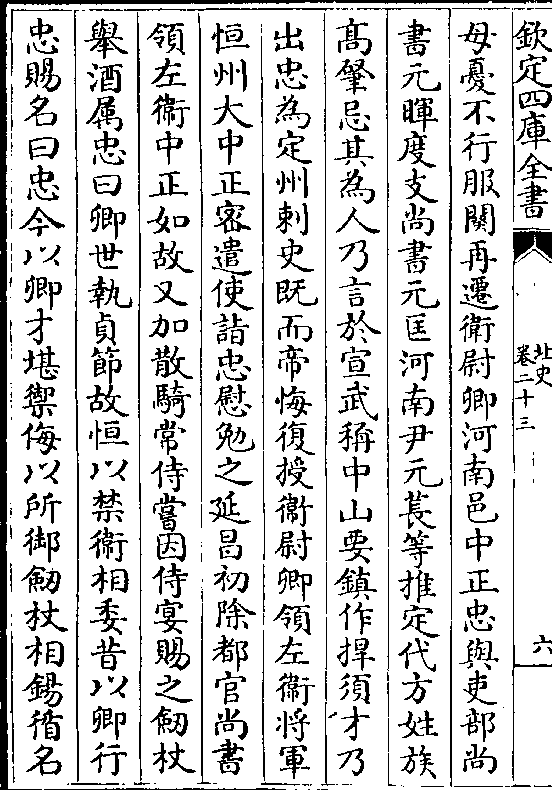 欽定四庫全書
北史
卷二十三
六
母憂不行服闋再遷衛尉卿河南邑中正忠與吏部尚
書元暉度支尚書元匡河南尹元萇等推定代方姓族
髙肇忌其為人乃言於宣武稱中山要鎮作捍須才乃
出忠為定州刺史既而帝悔復授衛尉卿領左衛將軍
恒州大中正宻遣使詣忠慰勉之延昌初除都官尚書
領左衛中正如故又加散騎常侍嘗因侍宴賜之劒杖
舉酒属忠曰卿世執貞節故恒以禁衛相委昔以卿行
忠賜名曰忠今以卿才堪禦侮以所御劒杖相錫循名